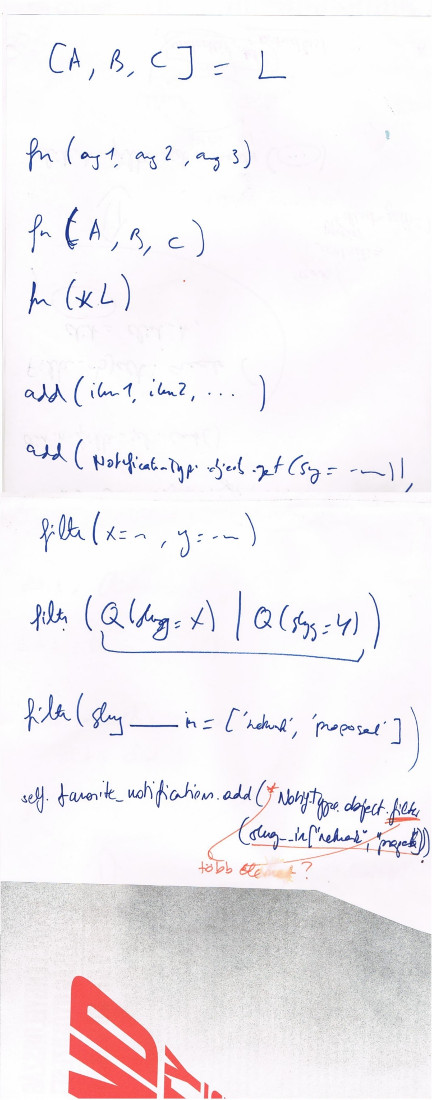 [A, B, C] = L
fn (arg1, arg2, arg3)
fn (A, B, C)
fn (*L)
add (item1, item2, ... )
add (NotificationType.objects.get (
filter (x=~, y=~)
filter (Q(slug=X) | Q(slug=Y))
filter (slug__in = ['network', 'proposal'])
self.favorite_notifications.add (* NotifType.object.filter
(slug__in["network", "project"]))
több elemet?
ND